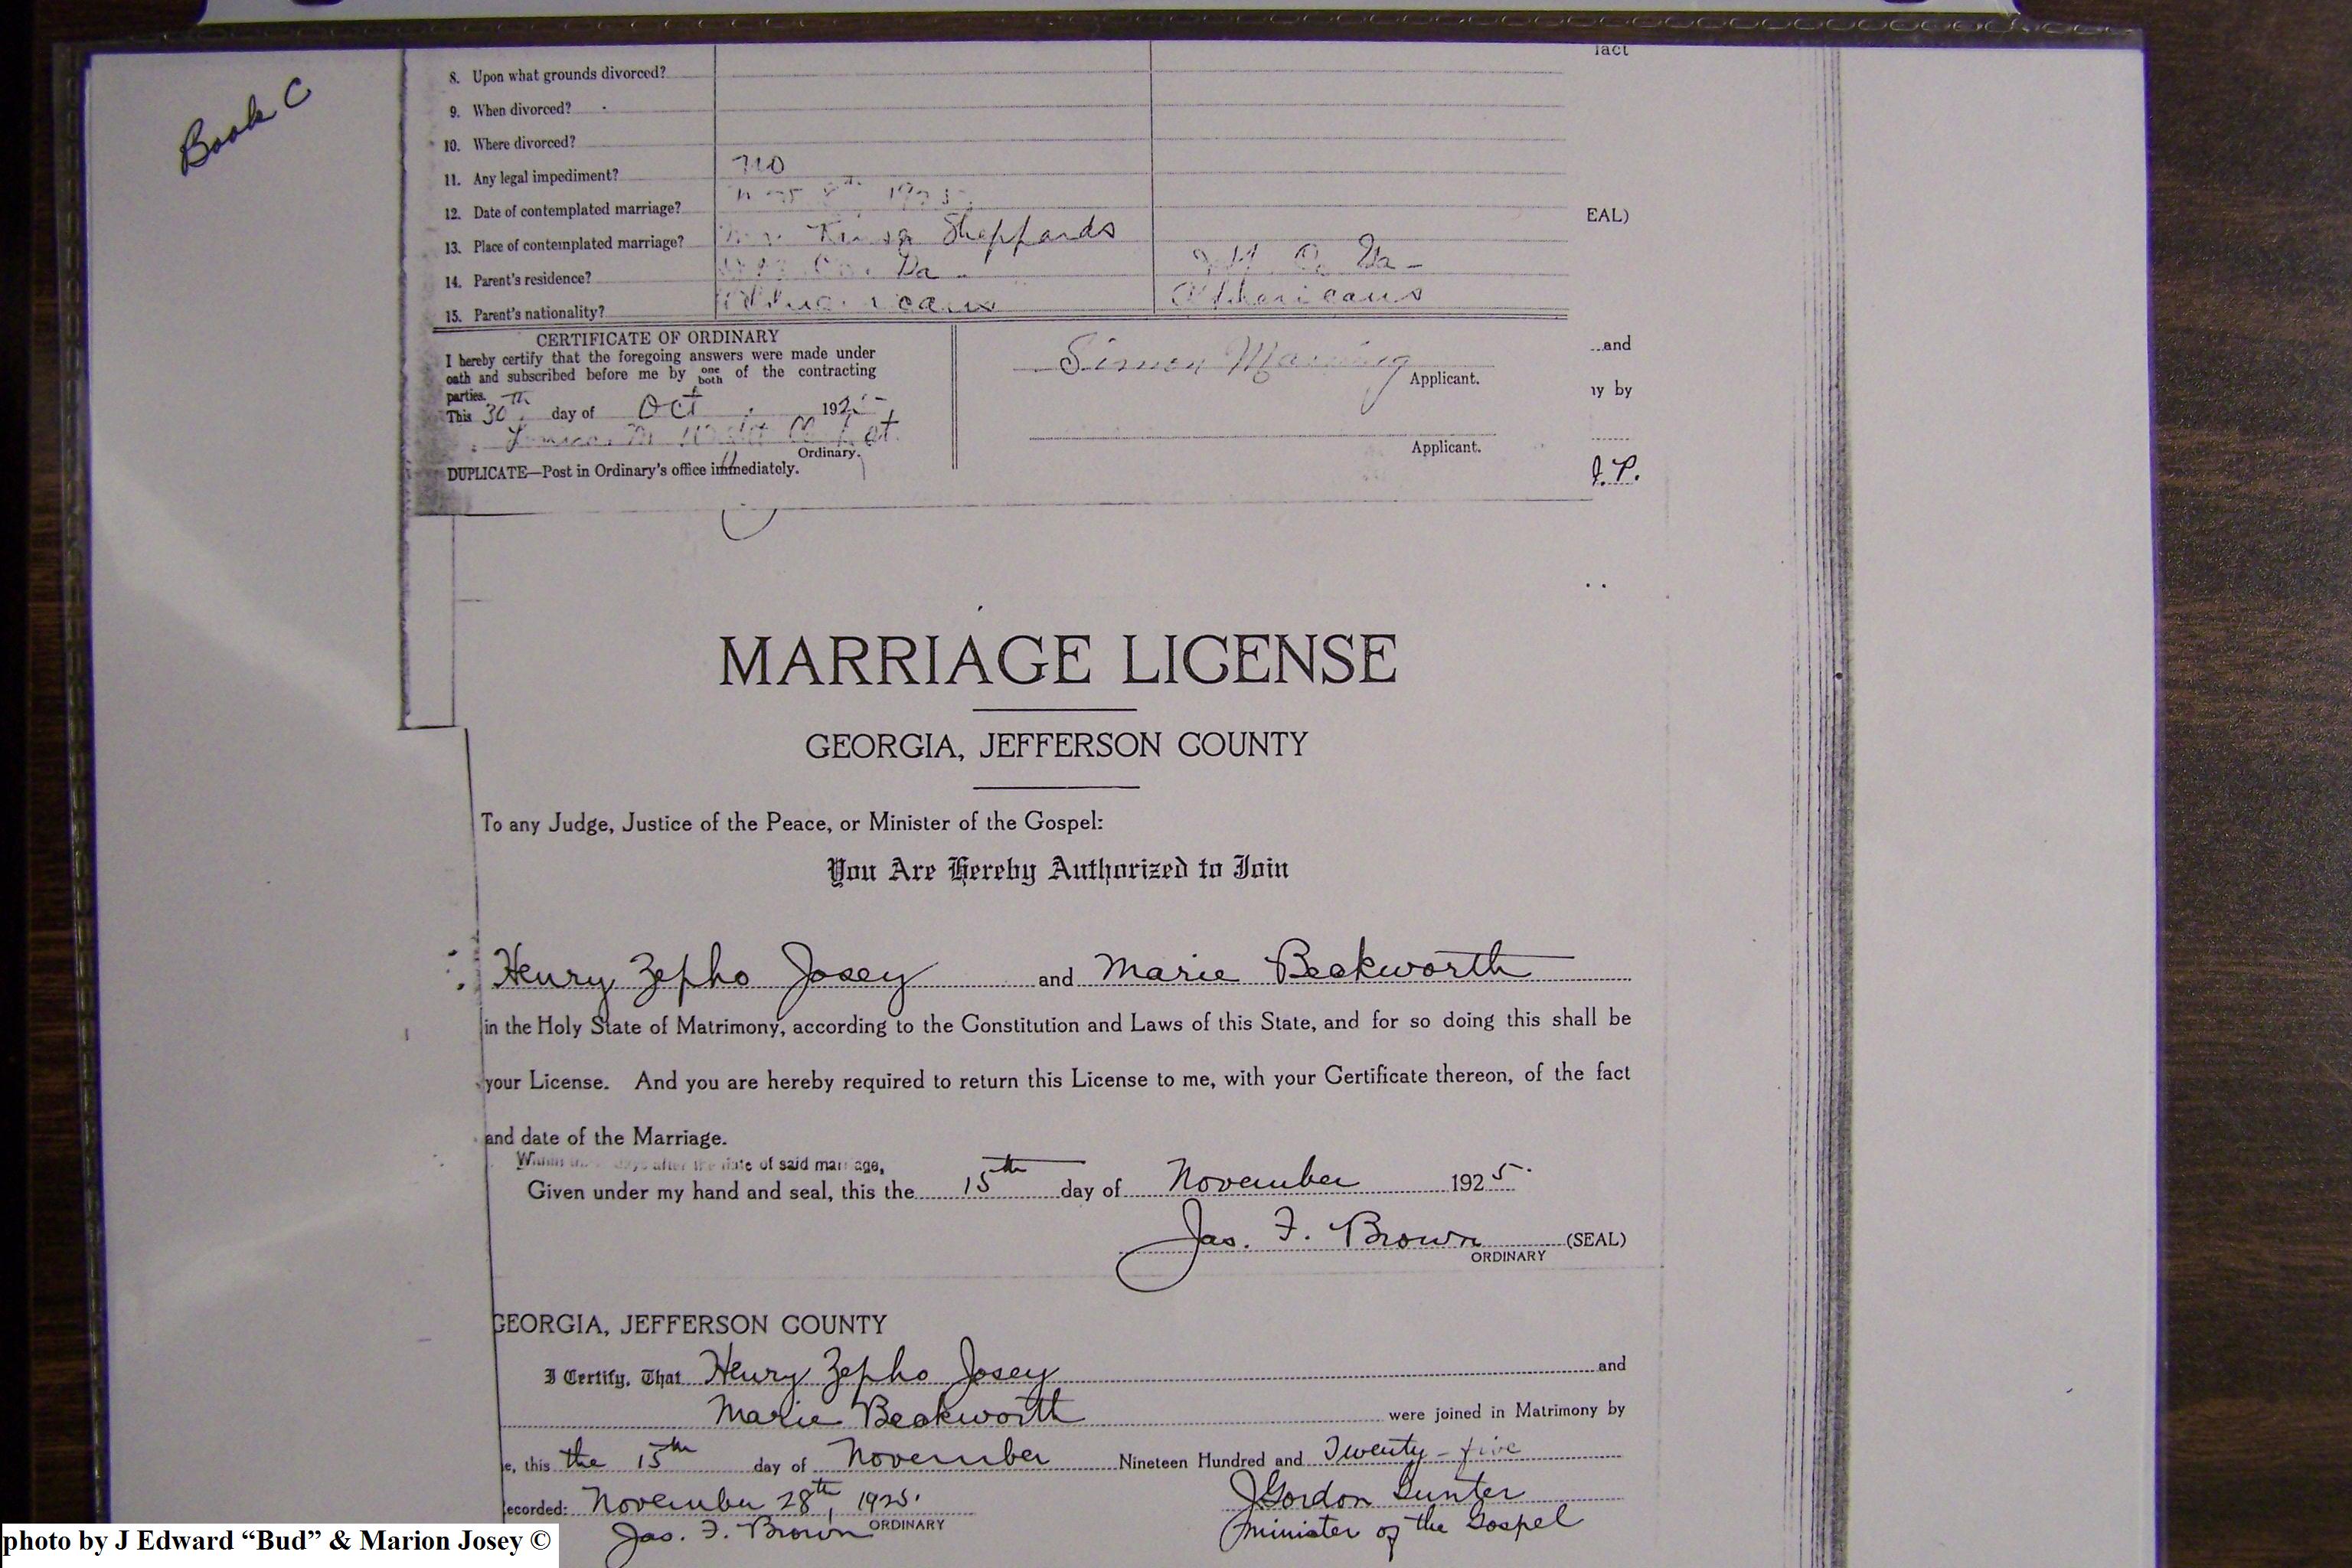 Book C
fact
8. Upon what grounds divorced?
9. When divorced?
10. Where divorced?
11. Any legal impediment? no
12. Date of contemplated marriage?
EAL)
13. Place of contemplated marriage? Sheppards
14. Parent's residence? Co. Ga - Co. Ga -
15. Parent's nationality? Americans Americans
CERTIFICATE OF ORDINARY
I hereby certify that the foregoing answers were made under
oath and subscribed before me by one both of the contracting
parties.
This 30th day of Oct. 1925
Ordinary.
DUPLICATE—Post in Ordinary's office immediately.
Simon
Applicant.
Applicant.
and
ny by
J.P.
MARRIAGE LICENSE
GEORGIA, JEFFERSON COUNTY
To any Judge, Justice of the Peace, or Minister of the Gospel:
You Are Hereby Authorized to Join
Henry Zepho Josey and Marie Beckworth
in the Holy State of Matrimony, according to the Constitution and Laws of this State, and for so doing this shall be
your License. And you are hereby required to return this License to me, with your Certificate thereon, of the fact
and date of the Marriage.
Within days after the date of said marriage,
Given under my hand and seal, this the 15th day of November 1925.
Jas. F. Brown (SEAL)
ORDINARY
GEORGIA, JEFFERSON COUNTY
I Certify, That Henry Zepho Josey and
Marie Beckworth were joined in Matrimony by
e, this the 15th day of November Nineteen Hundred and Twenty-five
ecorded: November 28th, 1925. J Gordon Gunter
Jas. F. Brown ORDINARY Minister of the Gospel
photo by J Edward “Bud” & Marion Josey ©